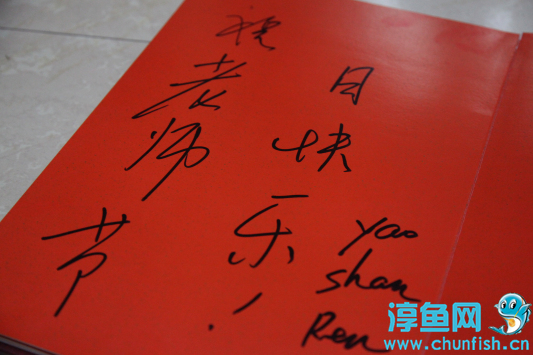 祝老师节
日快乐！
Yao
shan
Ren
淳鱼网
www.chunfish.cn